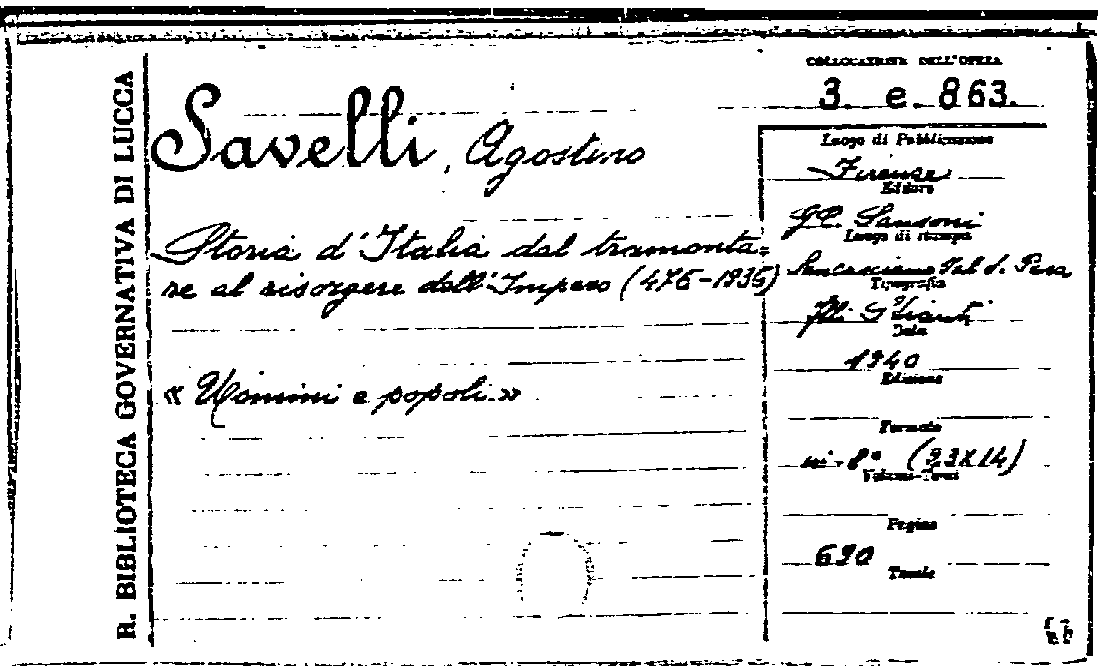 R. BIBLIOTECA GOVERNATIVA DI LUCCA
COLLOCAZIONE DELL'OPERA
3. e. 863.
Savelli, Agostino
Storia d'Italia dal tramonta=
re al risorgere dell'Impero (476-1936)
« Uomini e popoli »
Luogo di Pubblicazione
Firenze
Editore
G. C. Sansoni
Luogo di stampa
Sancasciano Val di Pesa
Tipografia
F.lli Stianti
Data
1940
Edizione
Formato
in-8° (23x14)
Volume-Tomi
Pagine
620
Tavole